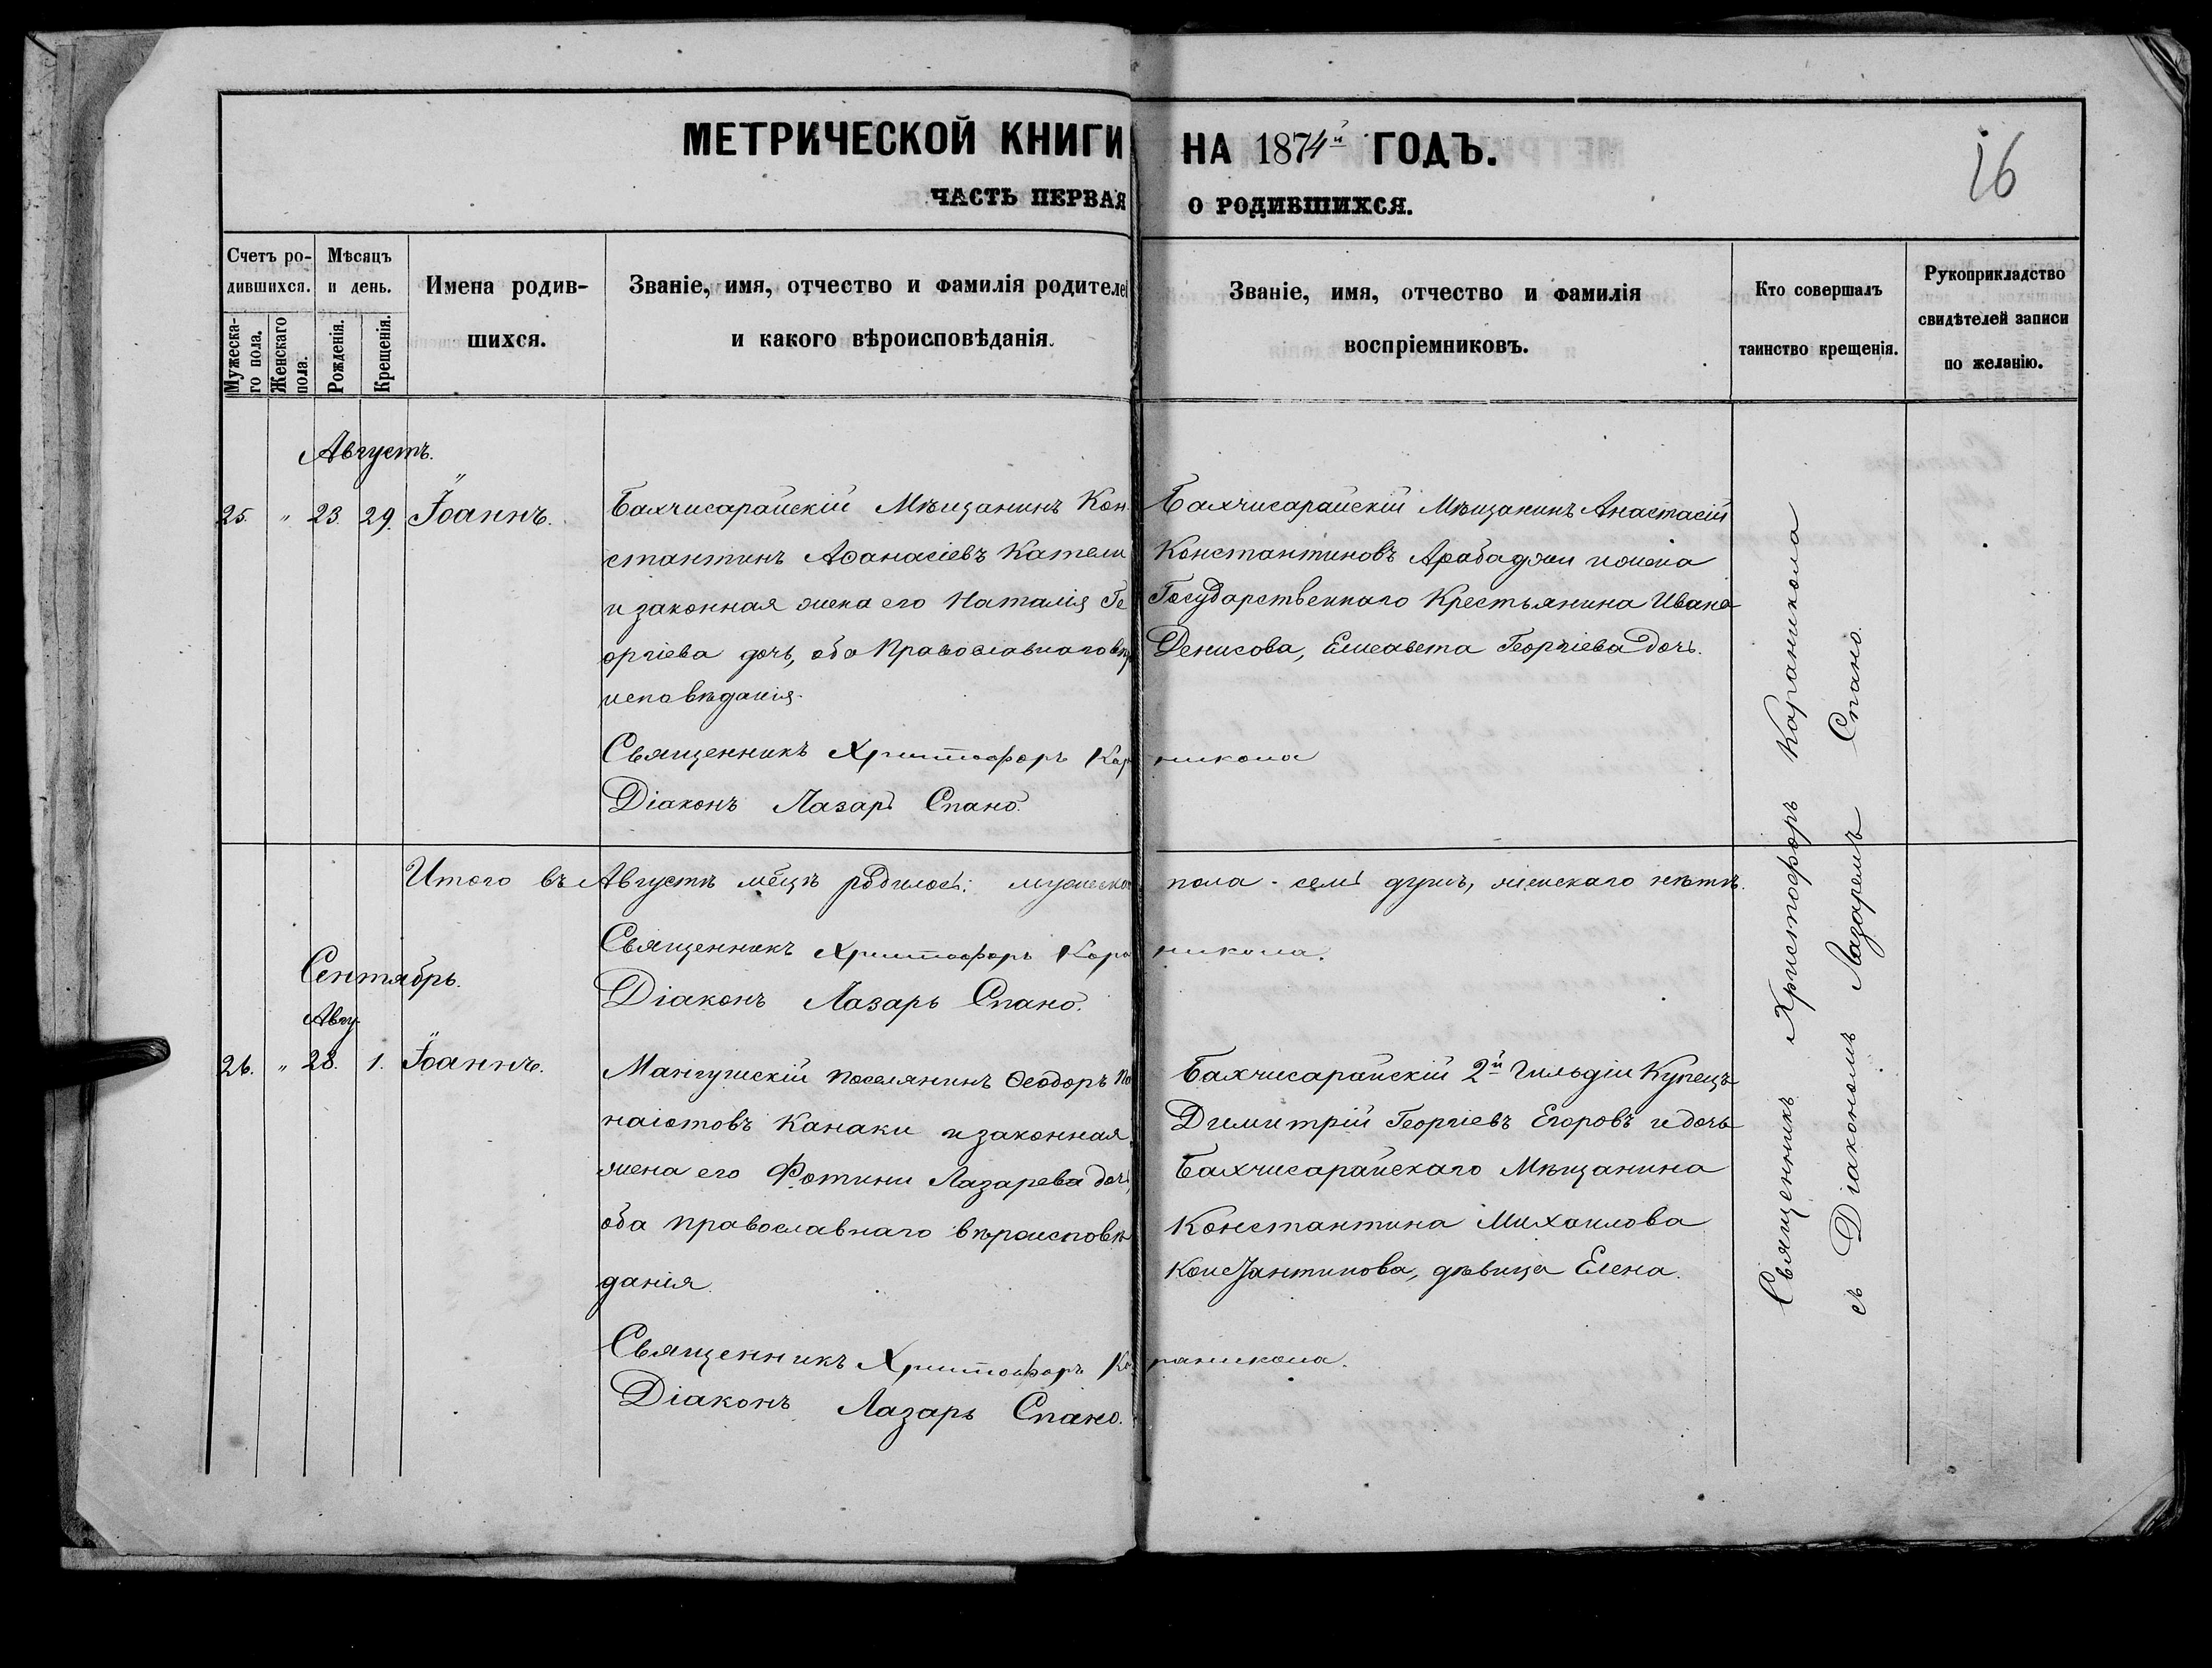 МЕТРИЧЕСКОЙ КНИГИ НА 1874й ГОДЪ.
16
ЧАСТЬ ПЕРВАЯ О РОДИВШИХСЯ.
Счетъ ро-
дившихся.
Мужеска-
го пола.
Женскаго
пола.
Мѣсяцъ
и день.
Рожденія.
Крещенія.
Имена родив-
шихся.
Званіе, имя, отчество и фамилія родителе
и какого вѣроисповѣданія.
Званіе, имя, отчество и фамилія
воспріемниковъ.
Кто совершалъ
таинство крещенія.
Рукоприкладство
свидѣтелей записи
по желанію.
Августъ.
25. " 23. 29. Іоаннъ.
Бахчисарайскій Мѣщанинъ Кон
стантинъ Аѳанасіевъ Катели
и законная жена его Наталія Ге
оргіева дочь, оба Православнаго вѣр
исповѣданія.
Священникъ Христофоръ Кар
Діаконъ Лазарь Спано.
Бахчисарайскій Мѣщанинъ Анастасій
Константиновъ Арабаджи и жена
Государственнаго Крестьянина Ивана
Денисова, Елисавета Георгіева дочь.
никола
Итого въ Августѣ мѣцѣ родилось: мужеско пола - семь душъ, женскаго нѣтъ.
Священникъ Христофоръ Кара никола.
Діаконъ Лазарь Спано.
Сентябрь.
Авгу.
26. " 28. 1. Іоаннъ.
Мангушскій поселянинъ Ѳеодоръ Па
наіотовъ Канаки и законная
жена его Фотини Лазарева дочь,
оба православнаго вѣроисповѣ
данія.
Священникъ Христофоръ Ка
Діаконъ Лазарь Спано.
Бахчисарайскій 2й Гильдіи Купецъ
Димитрій Георгіевъ Егоровъ и дочь
Бахчисарайскаго Мѣщанина
Константина Михаилова
Константинова, дѣвица Елена.
раникола.
Священникъ Христофоръ Караникола
съ Діакономъ Лазаремъ Спано.